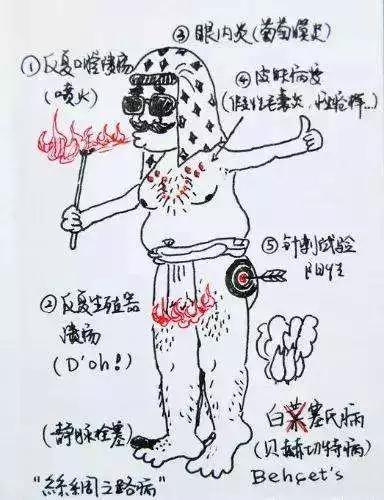 ③ 眼内炎(葡萄膜炎)
① 反复口腔溃疡
(喷火)
④ 皮肤病变
(假性毛囊炎、痤疮样...)
⑤ 针刺试验
阳性
② 反复生殖器
溃疡
(D'oh!)
(静脉栓塞)
"絲綢之路病"
白菜塞氏病
(贝赫切特病)
Behçet's